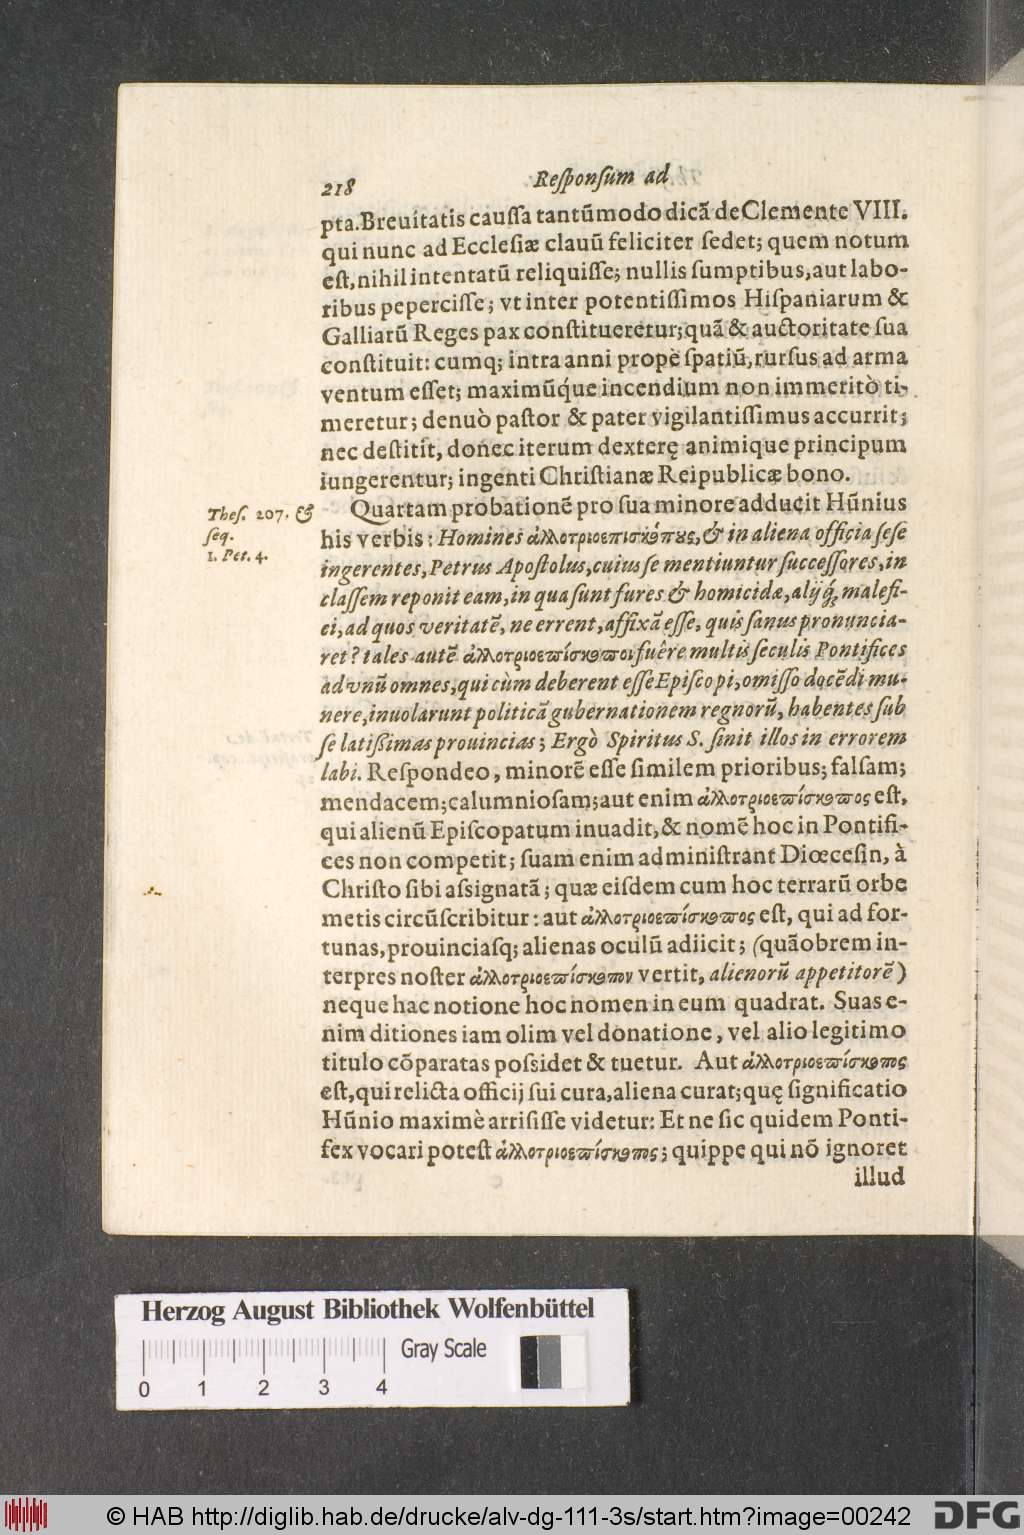 218 Reſponſum ad
pta. Breuitatis cauſſa tantũmodo dicã de Clemente VIII.
qui nunc ad Eccleſiæ clauũ feliciter ſedet; quem notum
eſt, nihil intentatũ reliquiſſe; nullis ſumptibus, aut labo-
ribus peperciſſe; vt inter potentiſſimos Hiſpaniarum &
Galliarũ Reges pax conſtitueretur; quã & auctoritate ſua
conſtituit: cumq; intra anni propè ſpatiũ, rurſus ad arma
ventum eſſet; maximũq́ue incendium non immeritò ti-
meretur; denuò paſtor & pater vigilantiſſimus accurrit;
nec deſtitit, donec iterum dexterę animique principum
iungerentur; ingenti Chriſtianæ Reipublicæ bono.
Quartam probationẽ pro ſua minore adducit Hũnius
Theſ. 207. &
ſeq.
1. Pet. 4.
his verbis: Homines ἀλλοτριοεπισκόπους, & in aliena officia ſeſe
ingerentes, Petrus Apoſtolus, cuius ſe mentiuntur ſucceſſores, in
claſſem reponit eam, in qua ſunt fures & homicidæ, alijq́; malefi-
ci, ad quos veritatẽ, ne errent, affixã eſſe, quis ſanus pronuncia-
ret? tales autẽ ἀλλοτριοεπίσκοποι fuêre multis ſeculis Pontifices
ad vnũ omnes, qui cùm deberent eſſe Epiſcopi, omiſſo docẽdi mu-
nere, inuolarunt politicã gubernationem regnorũ, habentes ſub
ſe latiſſimas prouincias; Ergò Spiritus S. ſinit illos in errorem
labi. Reſpondeo, minorẽ eſſe ſimilem prioribus; falſam;
mendacem; calumnioſam; aut enim ἀλλοτριοεπίσκοπος eſt,
qui alienũ Epiſcopatum inuadit, & nomẽ hoc in Pontifi-
ces non competit; ſuam enim adminiſtrant Diœceſin, à
Chriſto ſibi aſsignatã; quæ eiſdem cum hoc terrarũ orbe
metis circũſcribitur: aut ἀλλοτριοεπίσκοπος eſt, qui ad for-
tunas, prouinciaſq; alienas oculũ adiicit; (quãobrem in-
terpres noſter ἀλλοτριοεπίσκοπον vertit, alienorũ appetitorẽ)
neque hac notione hoc nomen in eum quadrat. Suas e-
nim ditiones iam olim vel donatione, vel alio legitimo
titulo cõparatas poſsidet & tuetur. Aut ἀλλοτριοεπίσκοπος
eſt, qui relicta officij ſui cura, aliena curat; quę ſignificatio
Hũnio maximè arriſiſſe videtur: Et ne ſic quidem Ponti-
fex vocari poteſt ἀλλοτριοεπίσκοπος; quippe qui nõ ignoret
illud
Herzog August Bibliothek Wolfenbüttel
Gray Scale
0 1 2 3 4
© HAB http://diglib.hab.de/drucke/alv-dg-111-3s/start.htm?image=00242
DFG